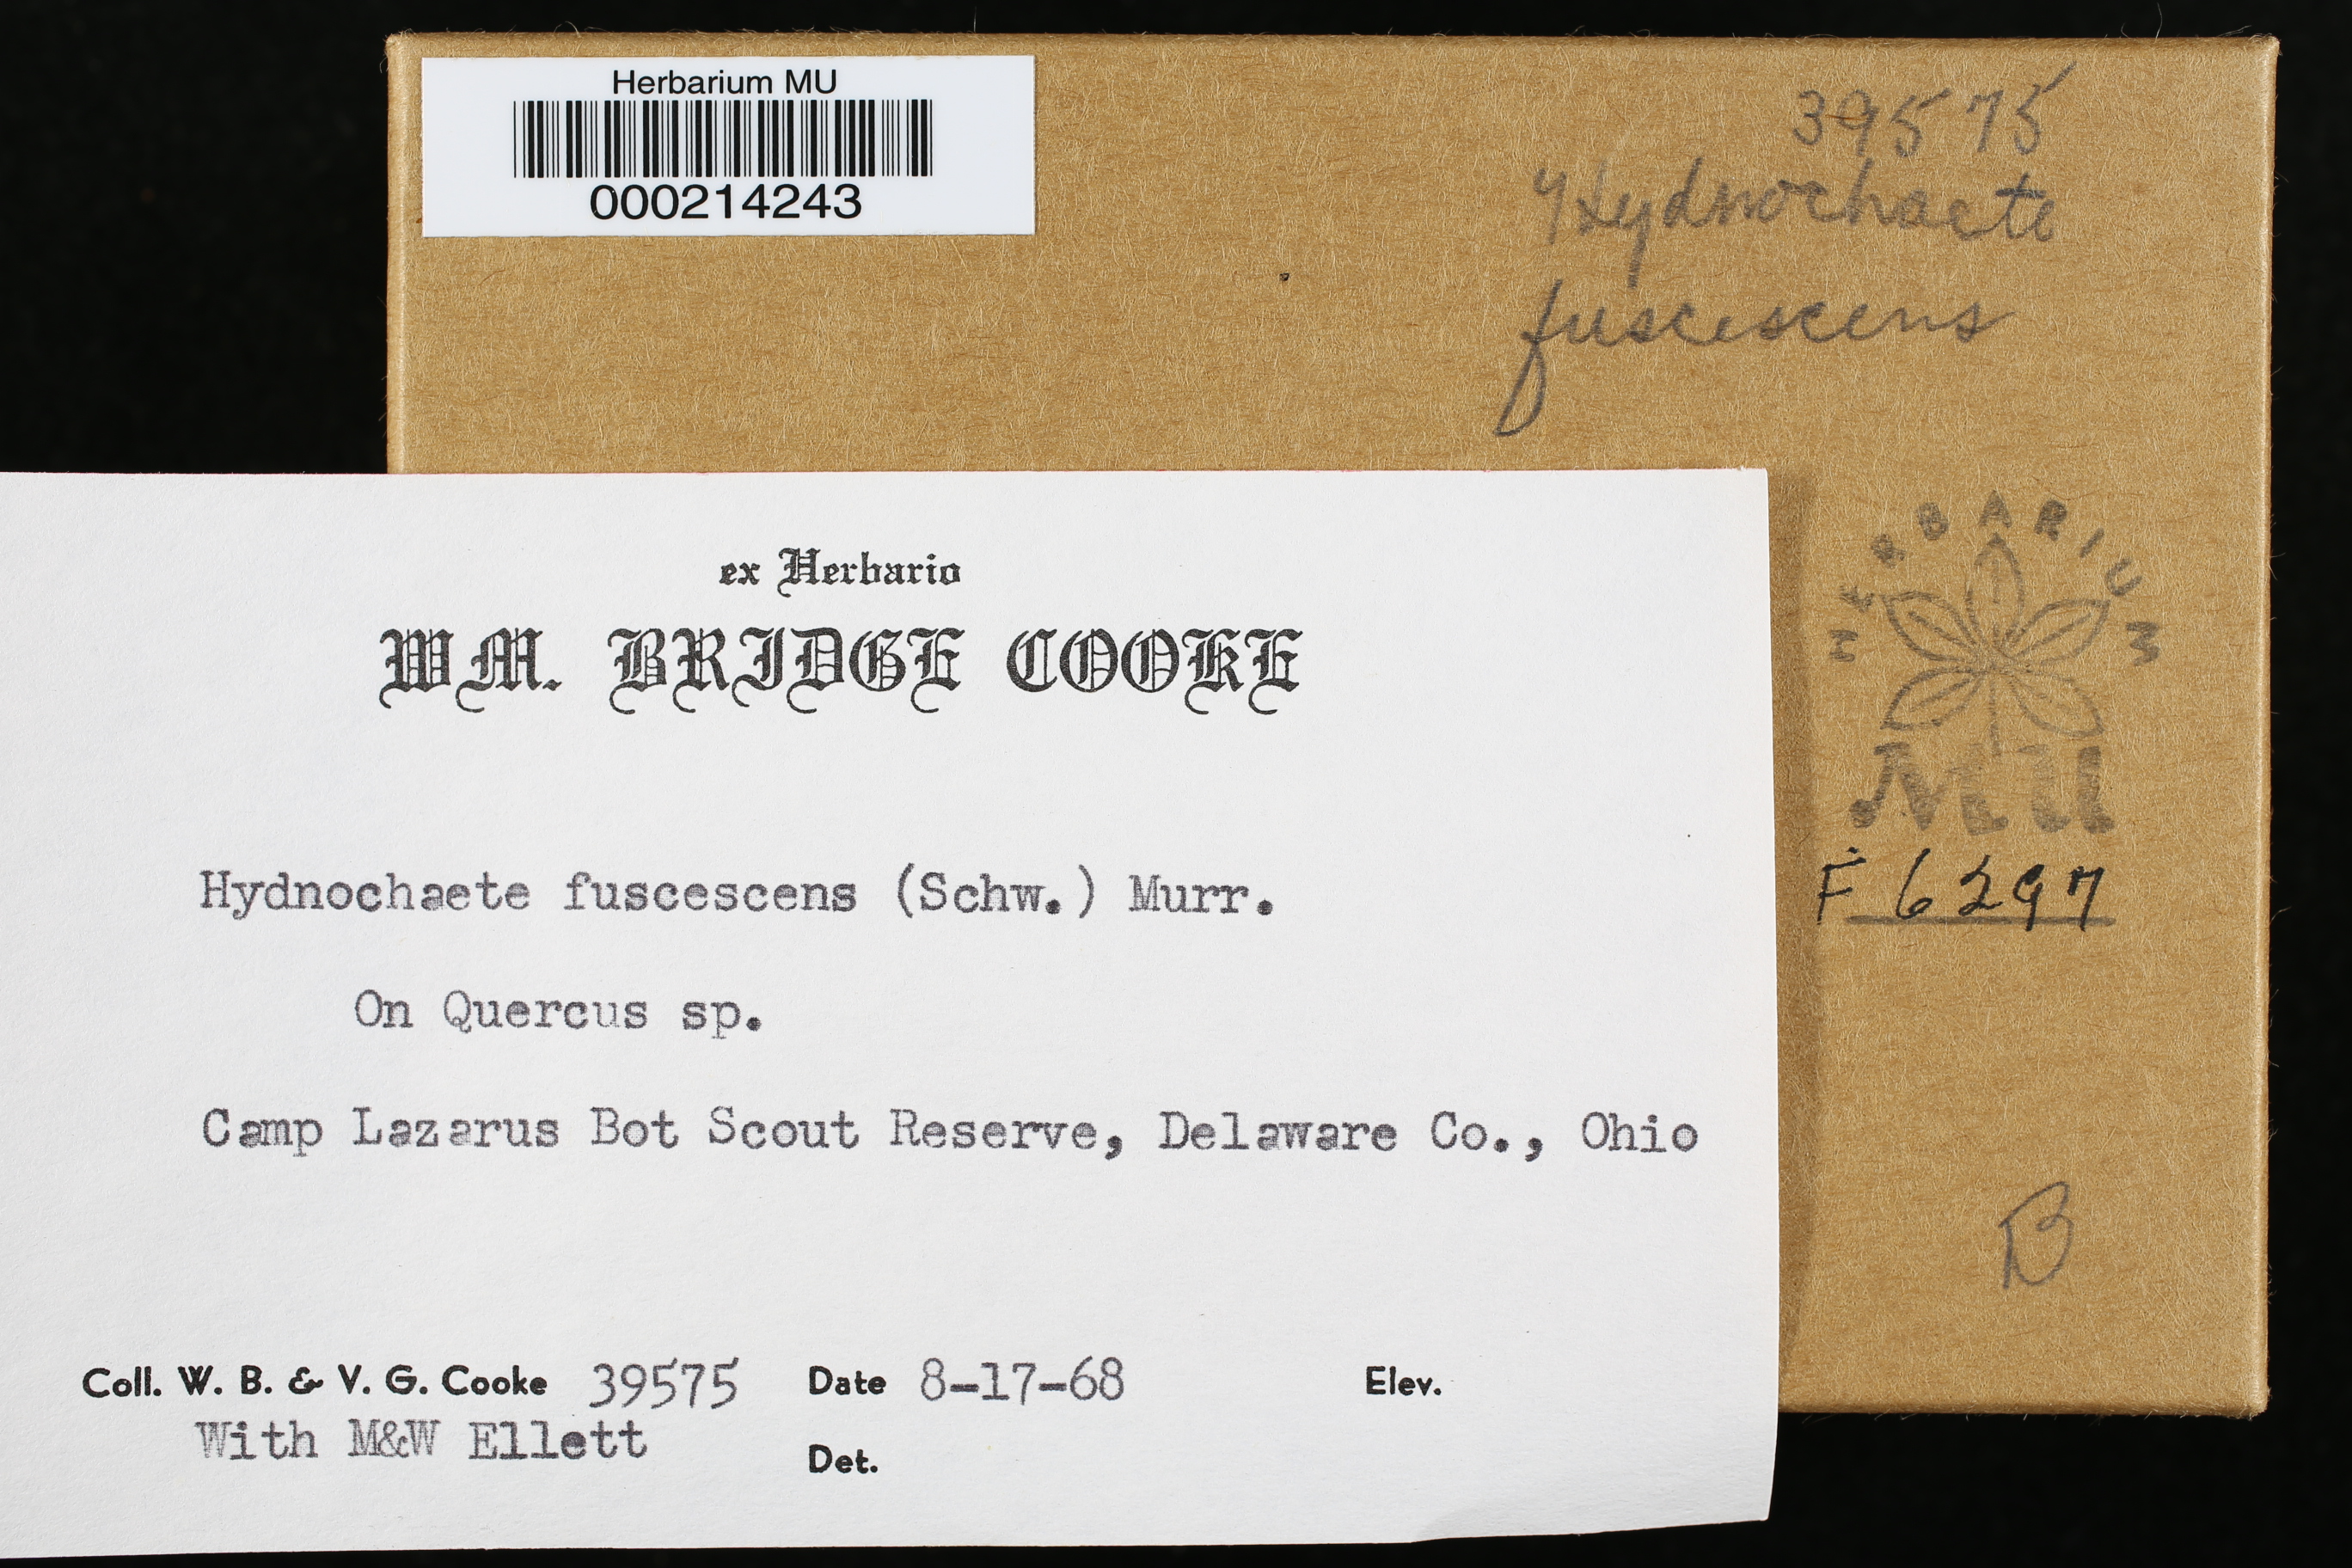 Herbarium MU
000214243
39575
Hydnochaete
fuscescens
HERBARIUM
MU
F 6297
B
ex Herbario
WM. BRIDGE COOKE
Hydnochaete fuscescens (Schw.) Murr.
On Quercus sp.
Camp Lazarus Bot Scout Reserve, Delaware Co., Ohio
Coll. W. B. & V. G. Cooke 39575 Date 8-17-68 Elev.
With M&W Ellett
Det.